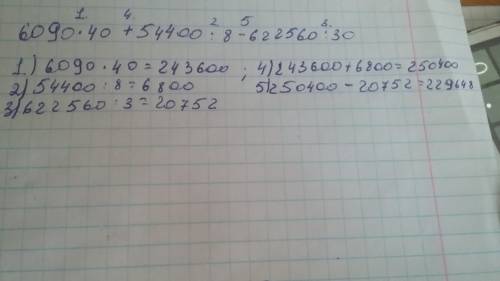 1. 4. 2 5 3.
6090·40 + 54400 : 8 - 622560 : 30
1) 6090 · 40 = 243600 ; 4) 243600 + 6800 = 250400
2) 54400 : 8 = 6800 5) 250400 - 20752 = 229648
3) 622560 : 3 = 20752